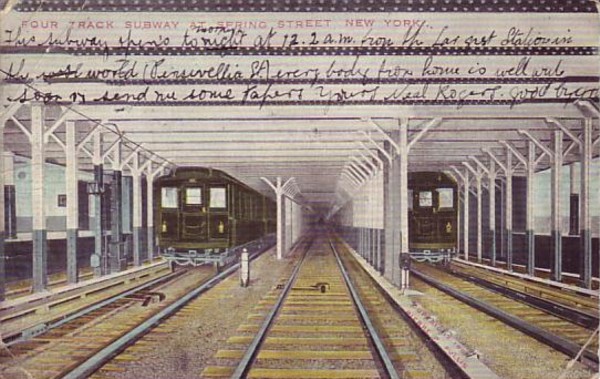 FOUR TRACK SUBWAY AT SPRING STREET NEW YORK.
This subway opens tonight at 12.2 a.m. from the largest Station in
the world (Pensivellia St) every body from home is well and
Soon send me some Papers Yours Neal Rogers. good by